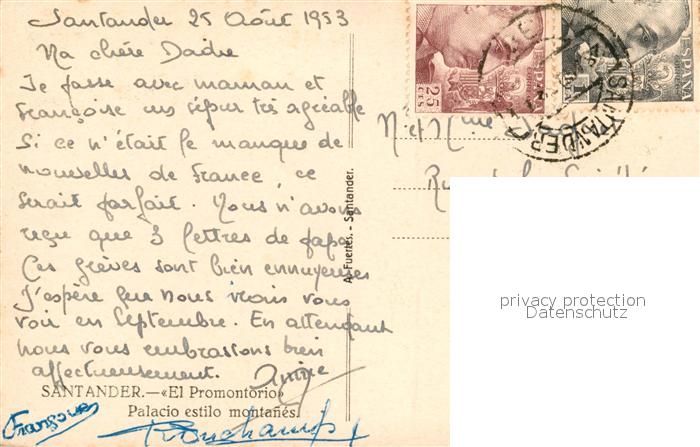 Santander 25 Août 1953
Ma chère Dadie
Je passe avec maman et
Françoise un séjour très agréable
Si ce n'était le manque de
nouvelles de France, ce
serait parfait. Nous n'avons
reçu que 3 lettres de papa
Ces grèves sont bien ennuyeuses
J'espère que nous irons vous
voir en Septembre. En attendant
nous vous embrassons bien
affectueusement.
SANTANDER.—«El Promontorio»
Palacio estilo montañés.
Françoise
A. Fuertes. - Santander.
25
CTS
ESPAÑA
ESPAÑA
SANTANDER
privacy protection
Datenschutz